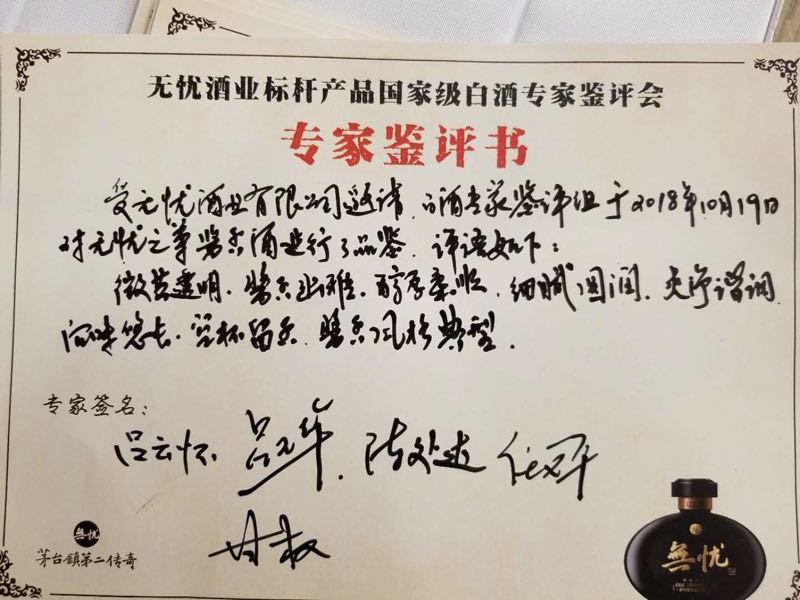 无忧酒业标杆产品国家级白酒专家鉴评会
专家鉴评书
受无忧酒业有限公司邀请，白酒专家鉴评组于2018年10月19日
对无忧之尊酱香酒进行了品鉴，评语如下：
微黄透明、酱香幽雅、醇厚柔顺、细腻圆润、爽净谐调
回味悠长、空杯留香、酱香风格典型。
专家签名：
吕云怀
無憂
茅台鎮第二传奇
無忧